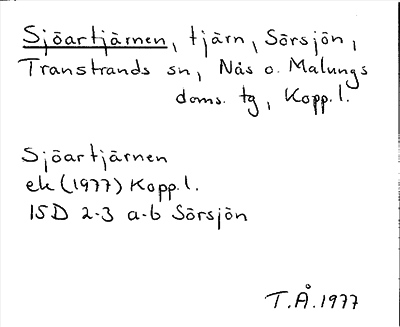 Sjöartjärnen, tjärn, Sörsjön,
Transtrands sn, Nås o. Malungs
doms. tg, Kopp. l.
Sjöartjärnen
ek (1977) Kopp. l.
15D 2-3 a-b Sörsjön
T.Å. 1977